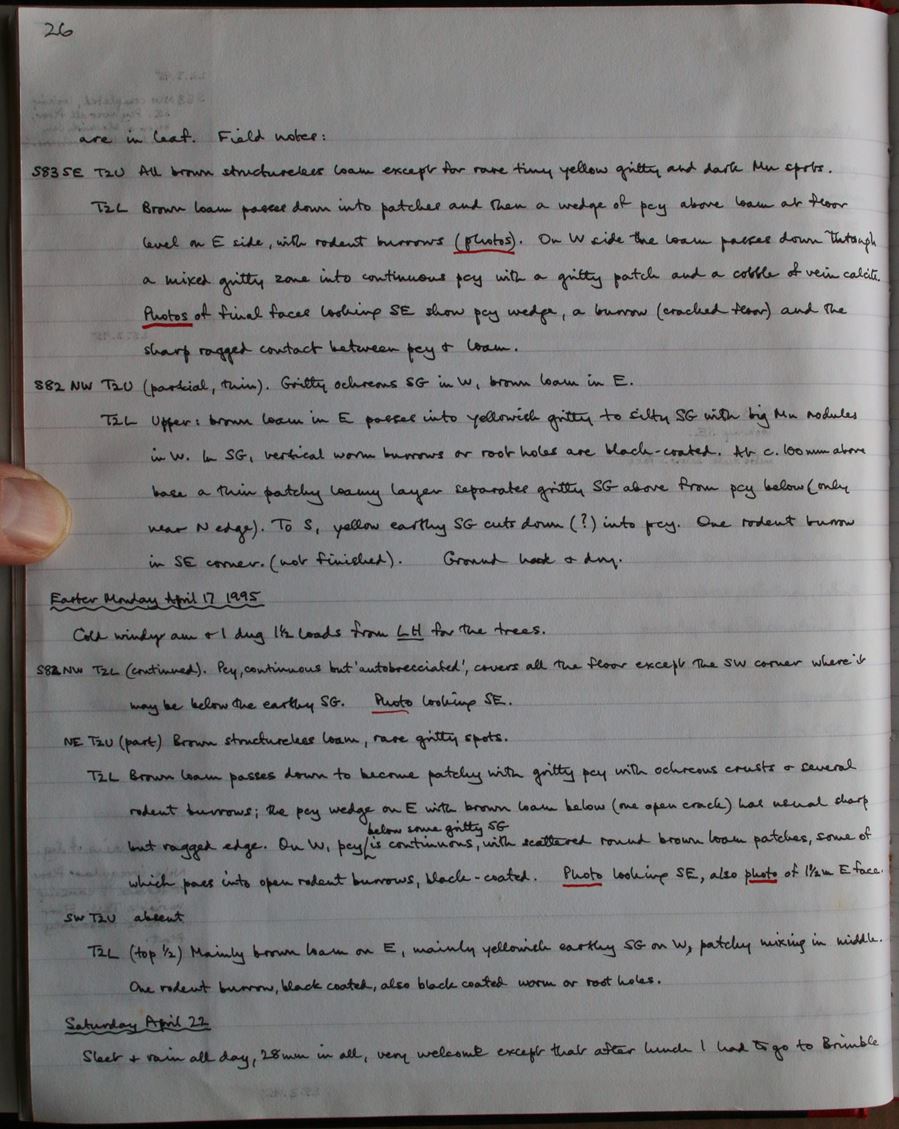 26
are in leaf. Field notes:
S83 SE T2U All brown structureless loam except for rare tiny yellow gritty and dark Mn spots.
T2L Brown loam passes down into patches and then a wedge of pcy above loam at floor
level on E side, with rodent burrows (photos). On W side the loam passes down through
a mixed gritty zone into continuous pcy with a gritty patch and a cobble of vein calcite.
Photos of final faces looking SE show pcy wedge, a burrow (cracked floor) and the
sharp ragged contact between pcy + loam.
S82 NW T2U (partial, thin). Gritty ochreous SG in W, brown loam in E.
T2L Upper: brown loam in E passes into yellowish gritty to silty SG with big Mn nodules
in W. In SG, vertical worm burrows or root holes are black-coated. At c. 100mm above
base a thin patchy loamy layer separates gritty SG above from pcy below (only
near N edge). To S, yellow earthy SG cuts down (?) into pcy. One rodent burrow
in SE corner. (not finished). Ground hard + dry.
Easter Monday April 17 1995
Cold windy am + I dug 1½ loads from LH for the trees.
S82 NW T2L (continued). Pcy, continuous but 'autobrecciated', covers all the floor except the SW corner where it
may be below the earthy SG. Photo looking SE.
NE T2U (part) Brown structureless loam, rare gritty spots.
T2L Brown loam passes down to become patchy with gritty pcy with ochreous crusts + several
rodent burrows; the pcy wedge on E with brown loam below (one open crack) has usual sharp
below some gritty SG
but ragged edge. On W, pcy is continuous, with scattered round brown loam patches, some of
which pass into open rodent burrows, black-coated. Photo looking SE, also photo of 1½m E face.
SW T2U absent
T2L (top ½) Mainly brown loam on E, mainly yellowish earthy SG on W, patchy mixing in middle.
One rodent burrow, black coated, also black coated worm or root holes.
Saturday April 22
Sleet + rain all day, 28mm in all, very welcome except that after lunch I had to go to Brimble